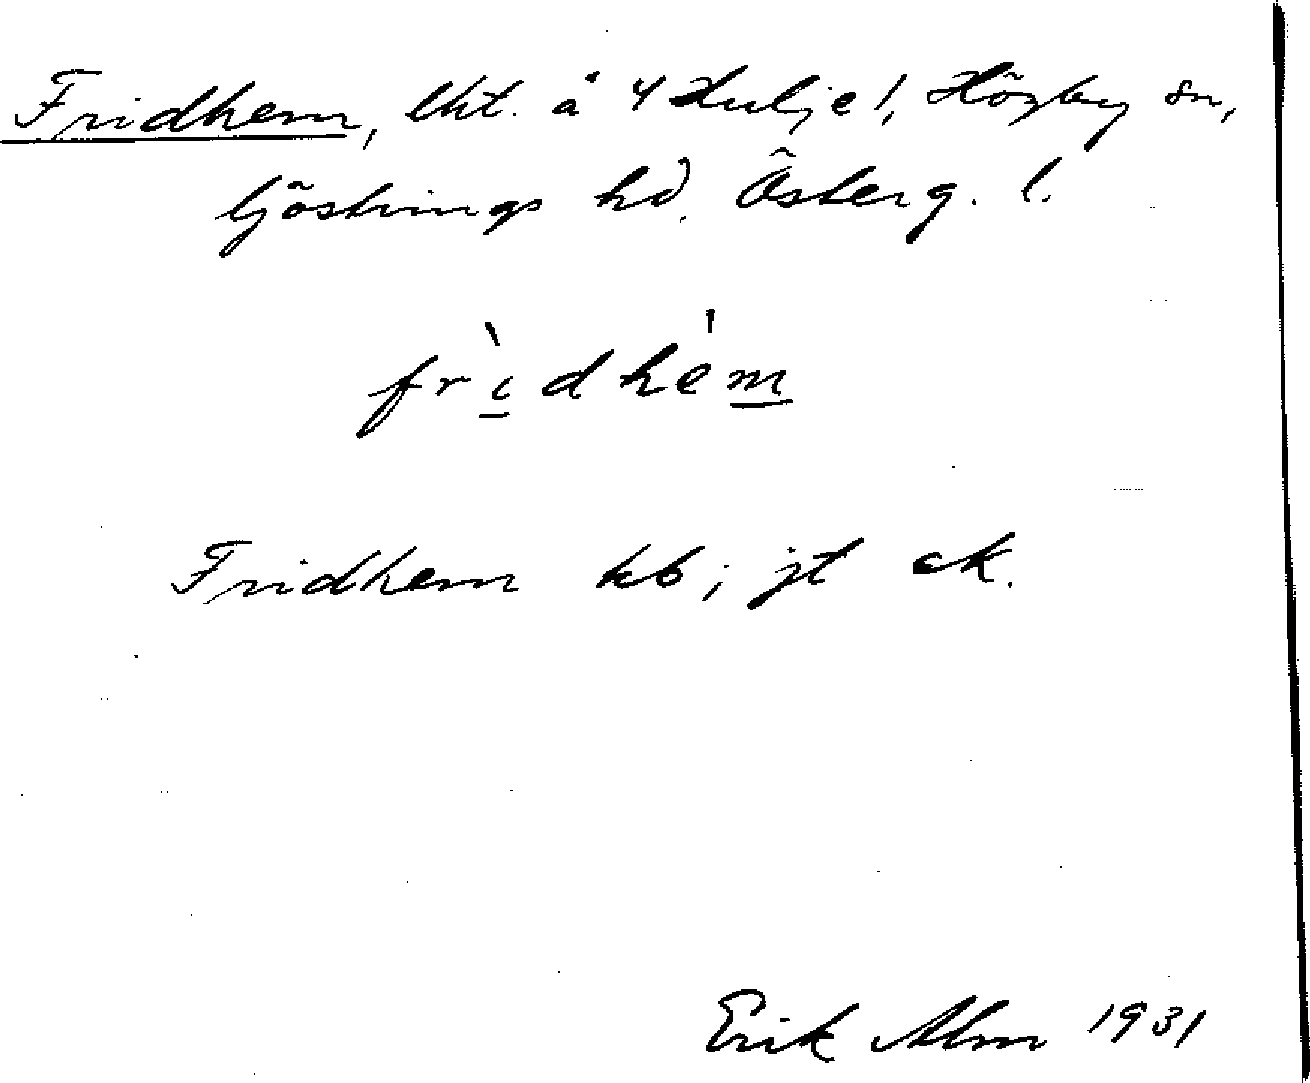 Fridhem, lht. å 4 Hulje l, Högby sn,
Göstrings hd. Österg. l.
fridhem
Fridhem kb; jt ek.
Erik Alm 1931